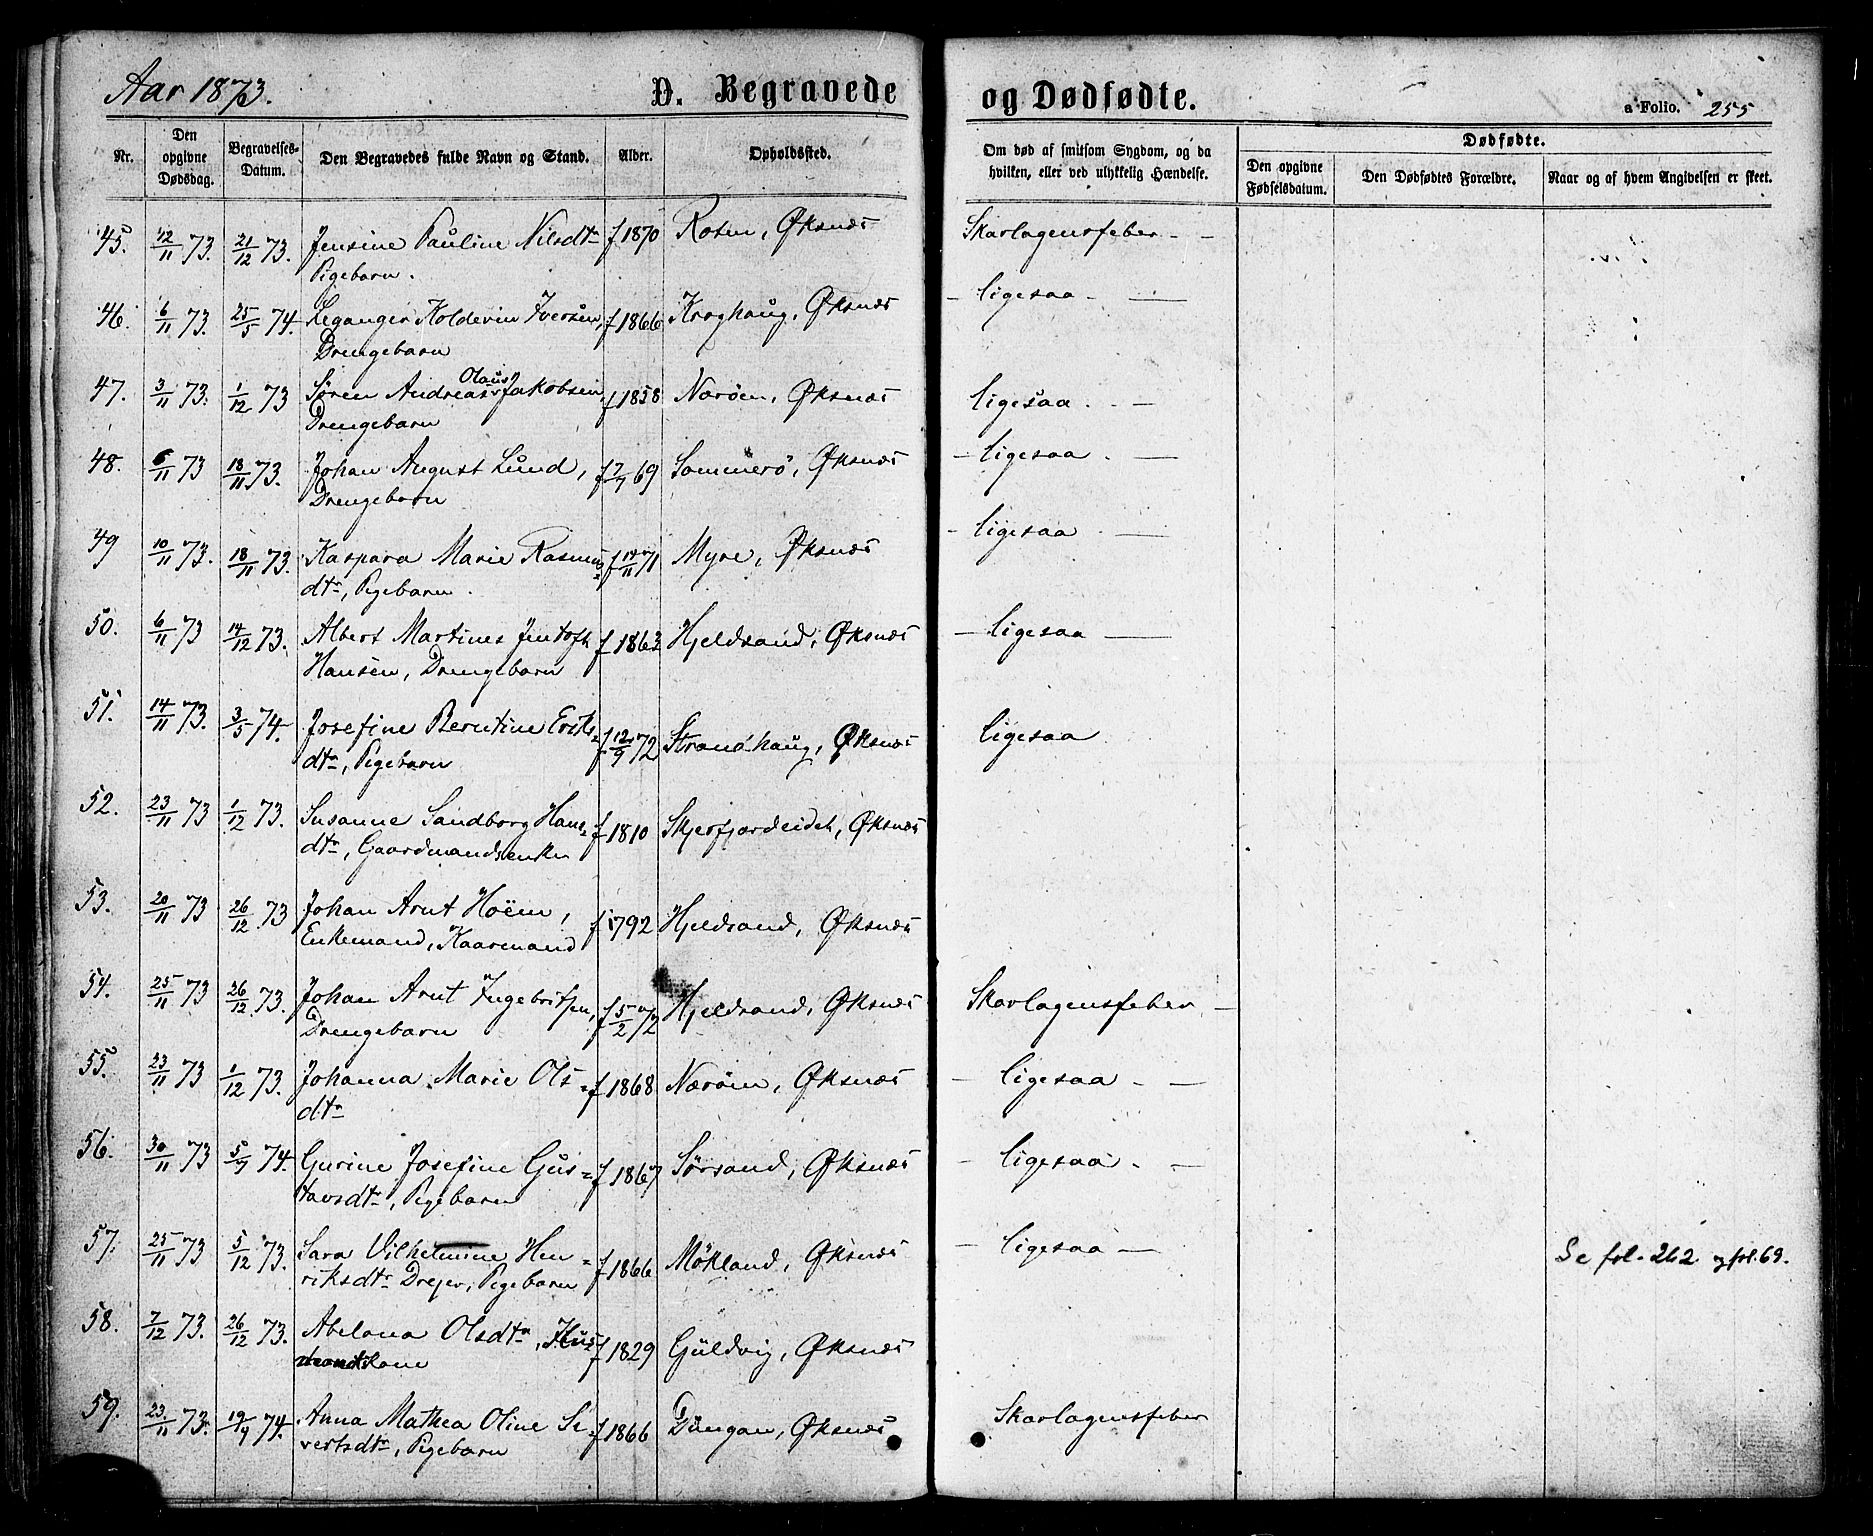 Aar 1873.
D. Begravede
og Dødfødte.
a Folio. 255
Nr.
Den opgivne Dødsdag.
Begravelses-Datum.
Den Begravedes fulde Navn og Stand.
Alder.
Opholdssted.
Om død af smitsom Sygdom, og da hvilken, eller ved ulykkelig Hændelse.
Dødfødte.
Den opgivne Fødselsdatum.
Den Dødfødtes Forældre.
Naar og af hvem Angivelsen er skeet.
45. 12/11 73. 21/12 73. Jensine Pauline Nilsdtr f 1870 Rosen, Øksnæs Skarlagensfeber - -
Pigebarn.
46. 6/11 73. 25/5 74. Leganger Kolderin Iversen, f 1866 Kroghaug, Øksnæs - ligesaa - —
Drengebarn
47. 3/11 73. 1/12 73 Søren Andreas Olaus Jakobsen f 1858 Nærøen, Øksnæs ligesaa - —
Drengebarn
48. 6/11 73 18/11 73. Johan August Lund, f 2/7 69 Sommerø, Øksnæs - ligesaa - —
Drengebarn
49 10/11 73. 18/11 73. Kaspara Marie Rasmus= f 14/11 71 Myre, Øksnæs - ligesaa - —
dtr, Pigebarn.
50. 6/11 73 14/12 73. Albert Martines Jentoft f 1863 Hjeldsand, Øksnæs - ligesaa —
Hansen, Drengebarn
51. 14/11 73. 3/5 74. Josefine Berntine Eriks= f 12/9 72 Strandhaug, Øksnæs ligesaa
dtr, Pigebarn
52. 23/11 73 1/12 73. Susanne Sandborg Hans= f 1810 Skjerfjordeidet, Øksnæs
dtr, Gaardmandsenke
53. 20/11 73 26/12 73 Johan Arnt Hoëm, f 1792 Hjeldsand, Øksnæs
Enkemand, Kaarmand
54. 25/11 73 26/12 73. Johan Arnt Ingebritsen, f 5/2 72 Hjeldsand, Øksnæs Skarlagensfeber —
Drengebarn
55. 23/11 73 1/12 73. Johanna Marie Ols= f 1868 Nærøen, Øksnæs - ligesaa - —
dtr
56. 30/11 73 5/7 74. Gurine Josefine Gus= f 1867 Sørsand, Øksnæs - ligesaa - —
tavsdtr, Pigebarn
57. 25/11 73 5/12 73. Sara Vilhelmine Hen= f 1866 Mökland, Øksnæs - ligesaa — Se fol. 262 og fol. 69.
riksdtr Drejer, Pigebarn
58. 7/12 73. 26/12 73. Abelona Olsdtr, Hus= f 1829 Guldvig, Øksnæs
mandskone
59. 23/11 73. 19/9 74. Anna Mathea Oline Si= f 1866 Dungan, Øksnæs Skarlagensfeber
vertsdtr, Pigebarn